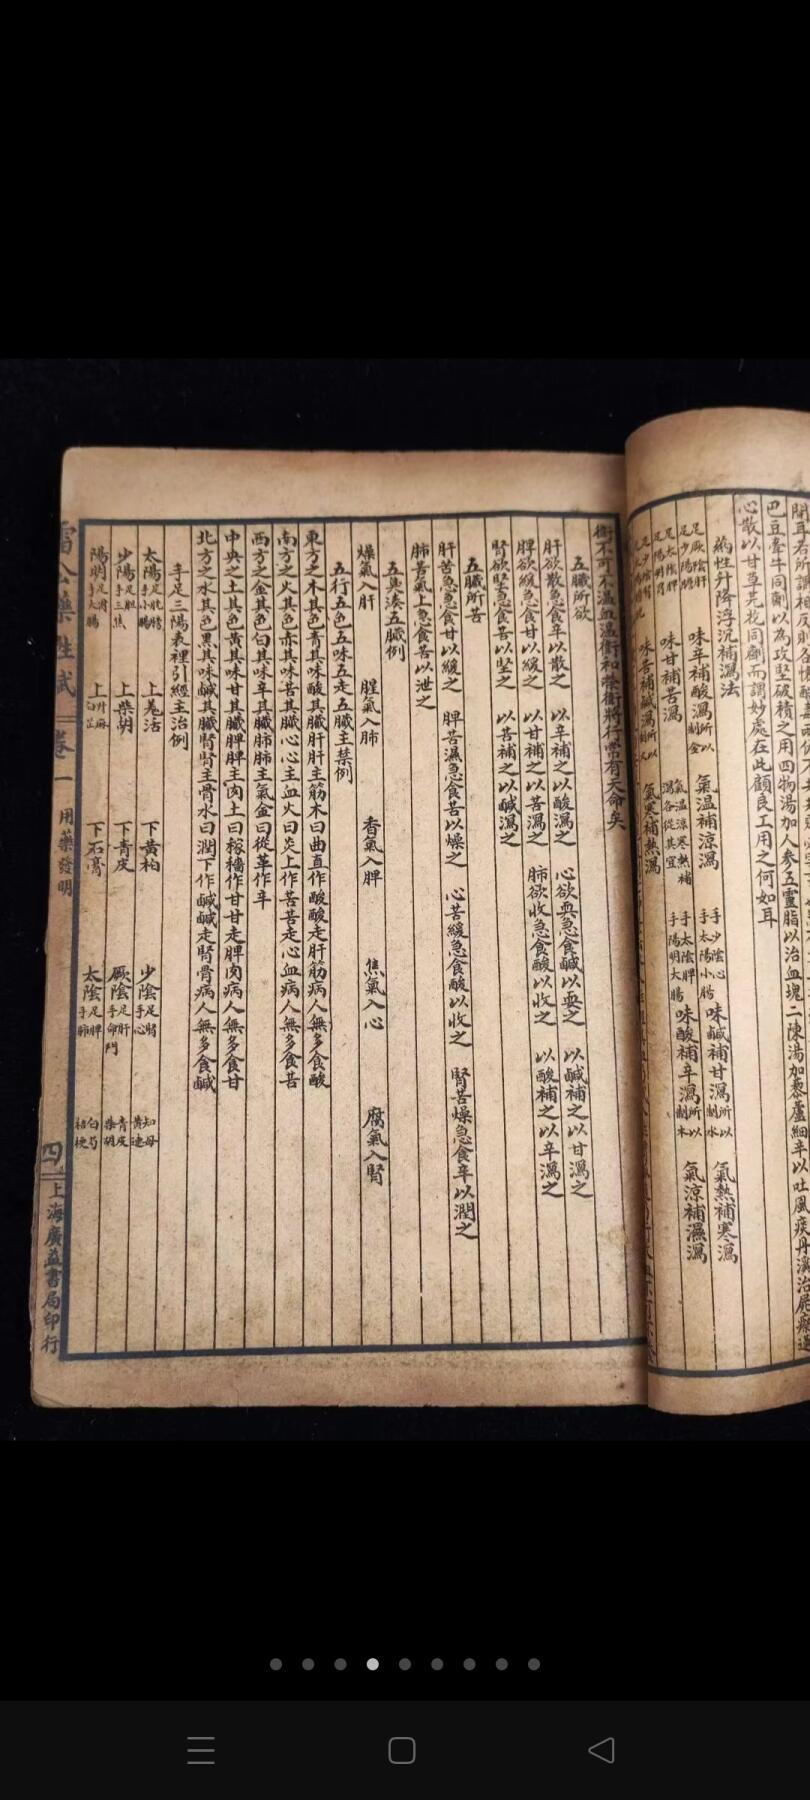 巴豆牽牛同劑以為攻堅破積之用四物湯加人參五靈脂以治血塊二陳湯加藜蘆細辛以吐風痰丹溪治尸瘵
心散以甘草芫花同劑而謂妙處在此顧良工用之何如耳
藥性升降浮沉補瀉法
足厥陰肝
足少陽膽
味辛補酸瀉所以制金
氣溫補涼瀉
手少陰心
手太陽小腸
味鹹補甘瀉所以制水
氣熱補寒瀉
足太陰脾
足陽明胃
味甘補苦瀉
氣溫涼寒熱補
瀉各從其宜
手太陰脾
手陽明大腸
味酸補辛瀉所以制木
氣涼補濕瀉
味苦補鹹瀉所以制火
氣寒補熱瀉
衛不可不溫血溫衛和榮衛將行常有天命矣
五臟所欲
肝欲散急食辛以散之 以辛補之以酸瀉之 心欲耎急食鹹以耎之 以鹹補之以甘瀉之
脾欲緩急食甘以緩之 以甘補之以苦瀉之 肺欲收急食酸以收之 以酸補之以辛瀉之
腎欲堅急食苦以堅之 以苦補之以鹹瀉之
五臟所苦
肝苦急急食甘以緩之 脾苦濕急食苦以燥之 心苦緩急食酸以收之 腎苦燥急食辛以潤之
肺苦氣上急食苦以泄之
五臭湊五臟例
燥氣入肝 腥氣入肺 香氣入脾 焦氣入心 腐氣入腎
五行五色五味五走五臟主禁例
東方之木其色青其味酸其臟肝肝主筋木曰曲直作酸酸走肝筋病人無多食酸
南方之火其色赤其味苦其臟心心主血火曰炎上作苦苦走心血病人無多食苦
西方之金其色白其味辛其臟肺肺主氣金曰從革作辛
中央之土其色黃其味甘其臟脾脾主肉土曰稼穡作甘甘走脾肉病人無多食甘
北方之水其色黑其味鹹其臟腎腎主骨水曰潤下作鹹鹹走腎骨病人無多食鹹
手足三陽表裡引經主治例
太陽足膀胱手小腸 上羌活 下黃柏 少陰足腎手心 知母黃連
少陽足胆手三焦 上柴胡 下青皮 厥陰足肝手命門 青皮柴胡
陽明足胃手大腸 上升麻白芷 下石膏 太陰足脾手肺 白芍桔梗
雷公藥性賦 卷一 用藥發明 四 上海廣益書局印行